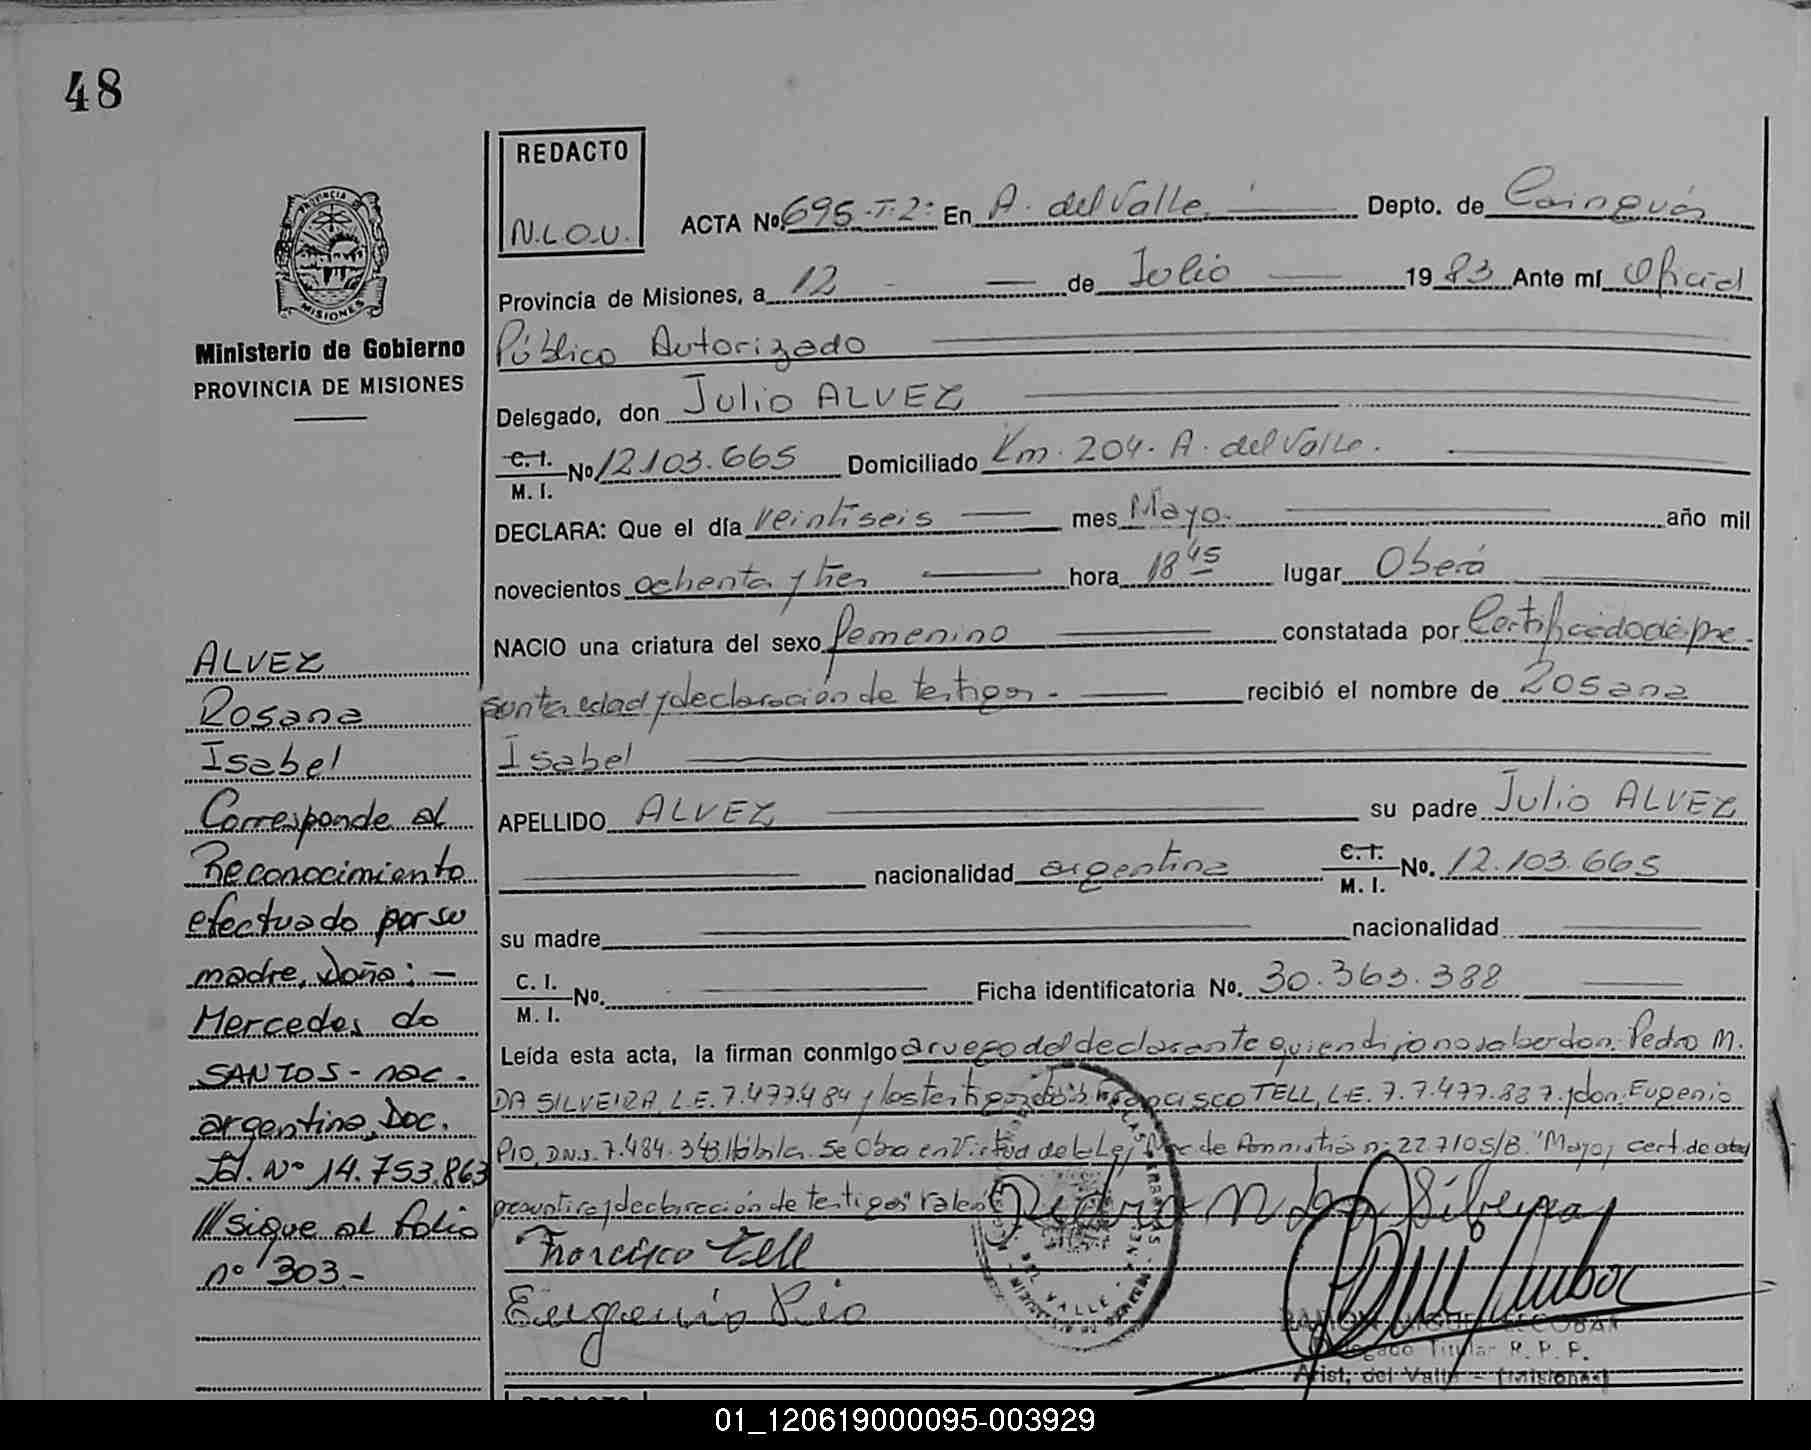 48
PROVINCIA
MISIONES
Ministerio de Gobierno
PROVINCIA DE MISIONES
ALVEZ
Rosana
Isabel
Corresponde al
Reconocimiento
efectuado por su
madre, Doña: -
Mercedes do
SANTOS - nac.
argentina, Doc.
Id. Nº 14.753.863
/// sigue al folio
nº 303 -
REDACTO
N.L.O.U.
ACTA No. 695-T.2: En A. del Valle. Depto. de Cainguás
Provincia de Misiones, a 12 de Julio 1983 Ante mí Oficial
Público Autorizado
Delegado, don Julio ALVEZ
C. I. M. I. No 12.103.665 Domiciliado Km. 204. A. del Valle.
DECLARA: Que el día veintiseis mes Mayo. año mil
novecientos ochenta y tres hora 18 45 lugar Oberá
NACIO una criatura del sexo femenino constatada por Certificado de pre-
sunta edad y declaración de testigos - recibió el nombre de Rosana
Isabel
APELLIDO ALVEZ su padre Julio ALVEZ
nacionalidad argentina C. I. M. I. No. 12.103.665
su madre nacionalidad
C. I. M. I. No. Ficha identificatoria No. 30.363.388
Leída esta acta, la firman conmigo a ruego del declarante quien dijo no saber don. Pedro M.
DA SILVEIRA, L.E. 7.477.484 y los testigos don Francisco TELL, L.E. 7.7.477.887. y don. Eugenio
PIO, D.N.I. 7.484.343. Hábiles. Se Obra en Virtud de la Ley de Amnistía nº 22.710 S/B. "Mayo, cert. de edad
presuntiva y declaración de testigos" Valen
Pedro M Da Silveira
Francisco Tell
Eugenio Pio
RAMON MIGUEL ESCOBAR
Delegado Titular R. P. P.
Arist. del Valle - (Misiones)
REDACTO
01_120619000095-003929